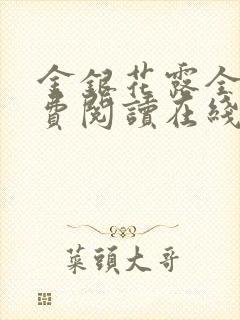 金銀花露全
費閱讀在綫
菜頭大哥